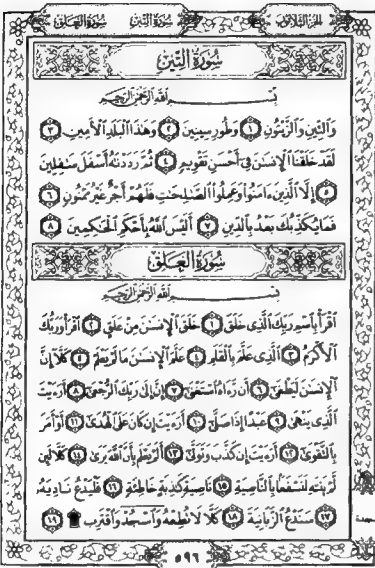 سُورَةُ العَلَقِ سُورَةُ التِّينِ الجُزْءُ الثَّلَاثُونَ
سُورَةُ التِّينِ
بِسْمِ اللَّهِ الرَّحْمَٰنِ الرَّحِيمِ
وَالتِّينِ وَالزَّيْتُونِ ١ وَطُورِ سِينِينَ ٢ وَهَٰذَا الْبَلَدِ الْأَمِينِ ٣
لَقَدْ خَلَقْنَا الْإِنسَٰنَ فِي أَحْسَنِ تَقْوِيمٍ ٤ ثُمَّ رَدَدْنَٰهُ أَسْفَلَ سَٰفِلِينَ
٥ إِلَّا الَّذِينَ ءَامَنُوا وَعَمِلُوا الصَّٰلِحَٰتِ فَلَهُمْ أَجْرٌ غَيْرُ مَمْنُونٍ ٦
فَمَا يُكَذِّبُكَ بَعْدُ بِالدِّينِ ٧ أَلَيْسَ اللَّهُ بِأَحْكَمِ الْحَٰكِمِينَ ٨
سُورَةُ العَلَقِ
بِسْمِ اللَّهِ الرَّحْمَٰنِ الرَّحِيمِ
اقْرَأْ بِاسْمِ رَبِّكَ الَّذِي خَلَقَ ١ خَلَقَ الْإِنسَٰنَ مِنْ عَلَقٍ ٢ اقْرَأْ وَرَبُّكَ
الْأَكْرَمُ ٣ الَّذِي عَلَّمَ بِالْقَلَمِ ٤ عَلَّمَ الْإِنسَٰنَ مَا لَمْ يَعْلَمْ ٥ كَلَّا إِنَّ
الْإِنسَٰنَ لَيَطْغَىٰ ٦ أَن رَّءَاهُ اسْتَغْنَىٰ ٧ إِنَّ إِلَىٰ رَبِّكَ الرُّجْعَىٰ ٨ أَرَءَيْتَ
الَّذِي يَنْهَىٰ ٩ عَبْدًا إِذَا صَلَّىٰ ١٠ أَرَءَيْتَ إِن كَانَ عَلَى الْهُدَىٰ ١١ أَوْ أَمَرَ
بِالتَّقْوَىٰ ١٢ أَرَءَيْتَ إِن كَذَّبَ وَتَوَلَّىٰ ١٣ أَلَمْ يَعْلَم بِأَنَّ اللَّهَ يَرَىٰ ١٤ كَلَّا لَئِن
لَّمْ يَنتَهِ لَنَسْفَعًا بِالنَّاصِيَةِ ١٥ نَاصِيَةٍ كَٰذِبَةٍ خَاطِئَةٍ ١٦ فَلْيَدْعُ نَادِيَهُ
١٧ سَنَدْعُ الزَّبَانِيَةَ ١٨ كَلَّا لَا تُطِعْهُ وَاسْجُدْ وَاقْتَرِب ۩ ١٩
سجدة
٥٩٦